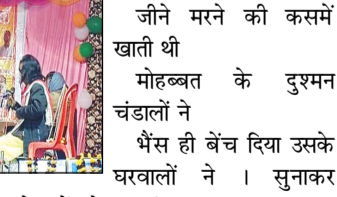 जीने मरने की कसमें
खाती थी
मोहब्बत के दुश्मन
चंडालों ने
भैंस ही बेंच दिया उसके
घरवालों ने । सुनाकर